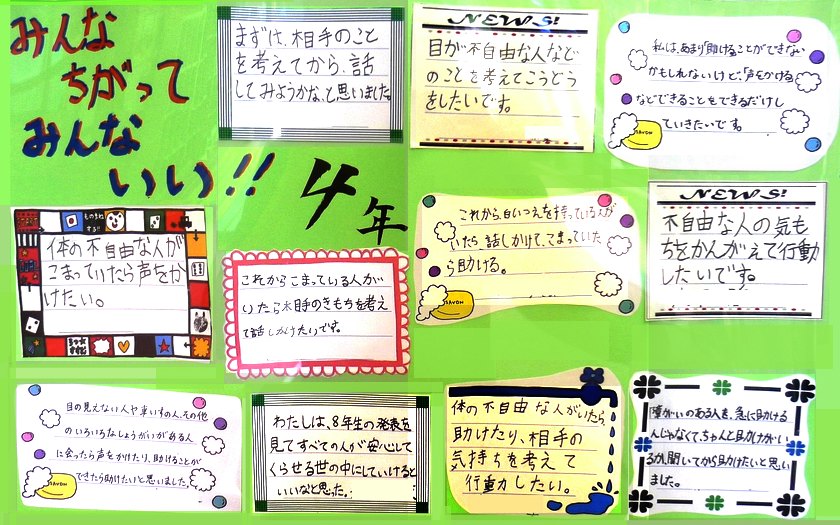 みんな
ちがって
みんな
いい!!
4年
まずは、相手のこと
を考えてから、話
してみようかな、と思いました。
NEWS!
目が不自由な人など
のことを考えてこうどう
をしたいです。
私は、あまり「助ける」ことができない
かもしれないけど、「声をかける」
などできることをできるだけし
ていきたいです。
SAVON
体の不自由な人が
こまっていたら声をか
けたい。
これからこまっている人が
いたら相手のきもちを考え
て話しかけたいです。
これから白いつえを持っている人が
いたら話しかけて、こまっていた
ら助ける。
SAVON
NEWS!
不自由な人の気も
ちをかんがえて行動
したいです。
目の見えない人や車いすの人、その他
のいろいろなしょうがいがある人
に会ったら声をかけたり、助けることが
できたら助けたいと思いました。
SAVON
わたしは、8年生の発表を
見てすべての人が安心して
くらせる世の中にしていけると
いいなと思った。
体の不自由な人がいたら、
助けたり、相手の
気持ちを考えて
行動したい。
障がいのある人を、急に助ける
んじゃなくて、ちゃんと助けがい
るか、聞いてから助けたいと思い
ました。